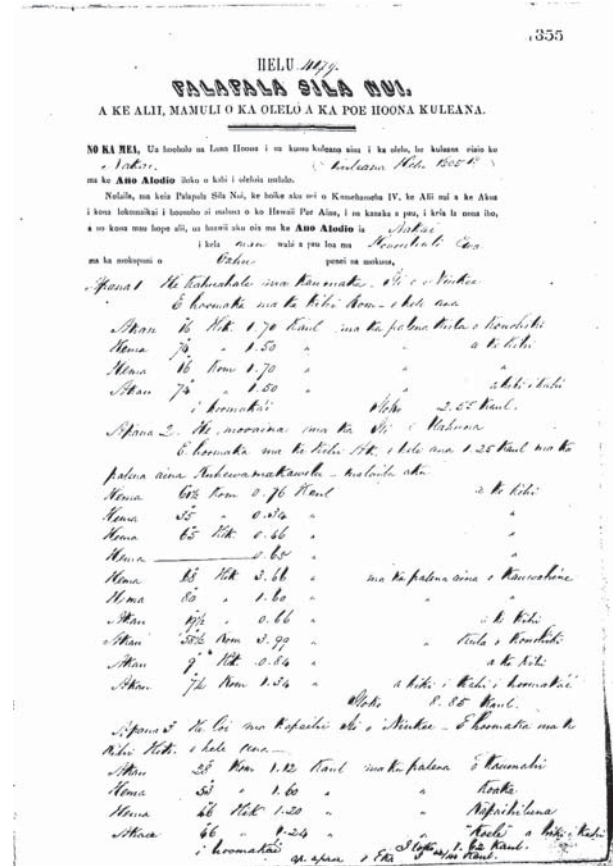 1355
HELU 4479.
PALAPALA SILA NUI.
A KE ALII, MAMULI O KA OLELO A KA POE HOONA KULEANA.
NO KA MEA, Ua hooholo na Luna Hoona i na kumu kuleana aina i ka olelo, he kuleana oiaio ko
Nakai Kuleana Helu
ma ke Ano Alodio iloko o kahi i oleloia malalo.
Nolaila, ma keia Palapala Sila Nui, ke hoike aku nei o Kamehameha IV, ke Alii nui a ke Akua
i kona lokomaikai i hoonoho ai maluna o ko Hawaii Pae Aina, i na kanaka a pau, i keia la nona iho,
a no kona mau hope alii, ua haawi aku oia ma ke Ano Alodio ia Nakai
i kela wahi a pau loa ma Honouliuli Ewa
ma ka mokupuni o Oahu penei na mokuna,
Apana 1 He Kahuahale ma Kaumaka Ili o Niukee
E hoomaka ma ke Kihi Kom. e hele ana
Akau 16 Hik. 1.70 Kaul ma ka palena Kula o Konohiki
Hema 74 " 1.50 " " a ke kihi
Hema 16 Kom 1.70 " "
Akau 74 " 1.50 " a hiki i kahi
i hoomakai Iloko 2.55 Kaul.
Apana 2. He mooaina ma ka Ili
E hoomaka ma ke Kihi Ak. e hele ana 1.25 Kaul ma ka
palena aina malaila aku
Hema Kom 0.76 Kaul a ke kihi
Hema 35 " 0.34 " "
Hema 65 Hik 0.46 " "
Hema 0.65 " "
Hema Hik 3.66 " ma ka palena aina o
Hema 80 " 1.60 " "
Akau " 0.66 " a ke Kihi
Akau Kom 3.99 " " Kula o Konohiki
Akau 9 Hik. 0.84 " a ke Kihi
Akau Kom 1.34 " a hiki i Kahi i hoomakai
Iloko 8.85 Kaul.
Apana 3 He loi ma Kapaihi Ili o Niukee E hoomaka ma ke
Kihi Hik. e hele ana
Akau 23 Kom 1.12 Kaul ma ka palena o Kaumahi
Hema 53 " 1.60 " "
Hema 46 Hik 1.20 " "
Akau 46 " 1.24 " " "Koele" a hiki i Kahi
i hoomakai Iloko 1.62 Kaul.